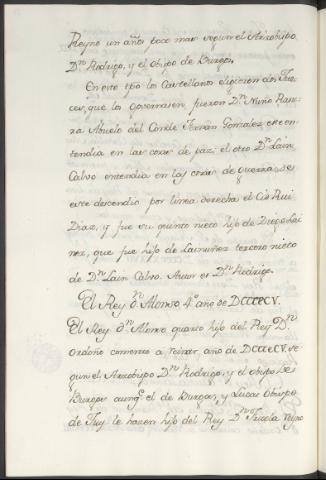 Reyno un año poco mas segun el Arzobispo
Dⁿ Rodrigo, y el obispo de Burgos.
En este tpo los Castellanos eligieron dos Jue-
ces, que los governasen, fueron Dⁿ Nuño Rasu-
ra Abuelo del Conde Fernan Gonzalez este en-
tendia en las cosas de paz: el otro Dⁿ Lain
Calvo entendia en las cosas de guerra, de
este descendio por linea derecha el Cid Rui
Diaz, y fue su quinto nieto hijo de Diego Lai
nez, que fue hijo de Lainuñez tercero nieto
de Dⁿ Lain Calvo. Autor es Dⁿ Rodrigo.
El Rey Dⁿ Alonso 4º año de DCCCCV.
El Rey Dⁿ Alonso quarto hijo del Rey Dⁿ
Ordoño comenzo a Reinar, año de DCCCCV. se
gun el Arzobispo Dⁿ Rodrigo, y el obispo de
Burgos aunq̃ el de Burgos, y Lucas Obispo
de Tuy le hacen hijo del Rey Dⁿ Fruela reyno